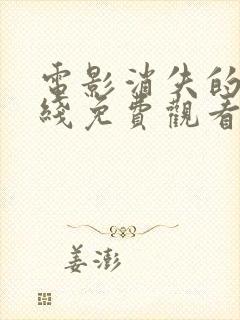 電影消失的
綫免費觀看
姜澎